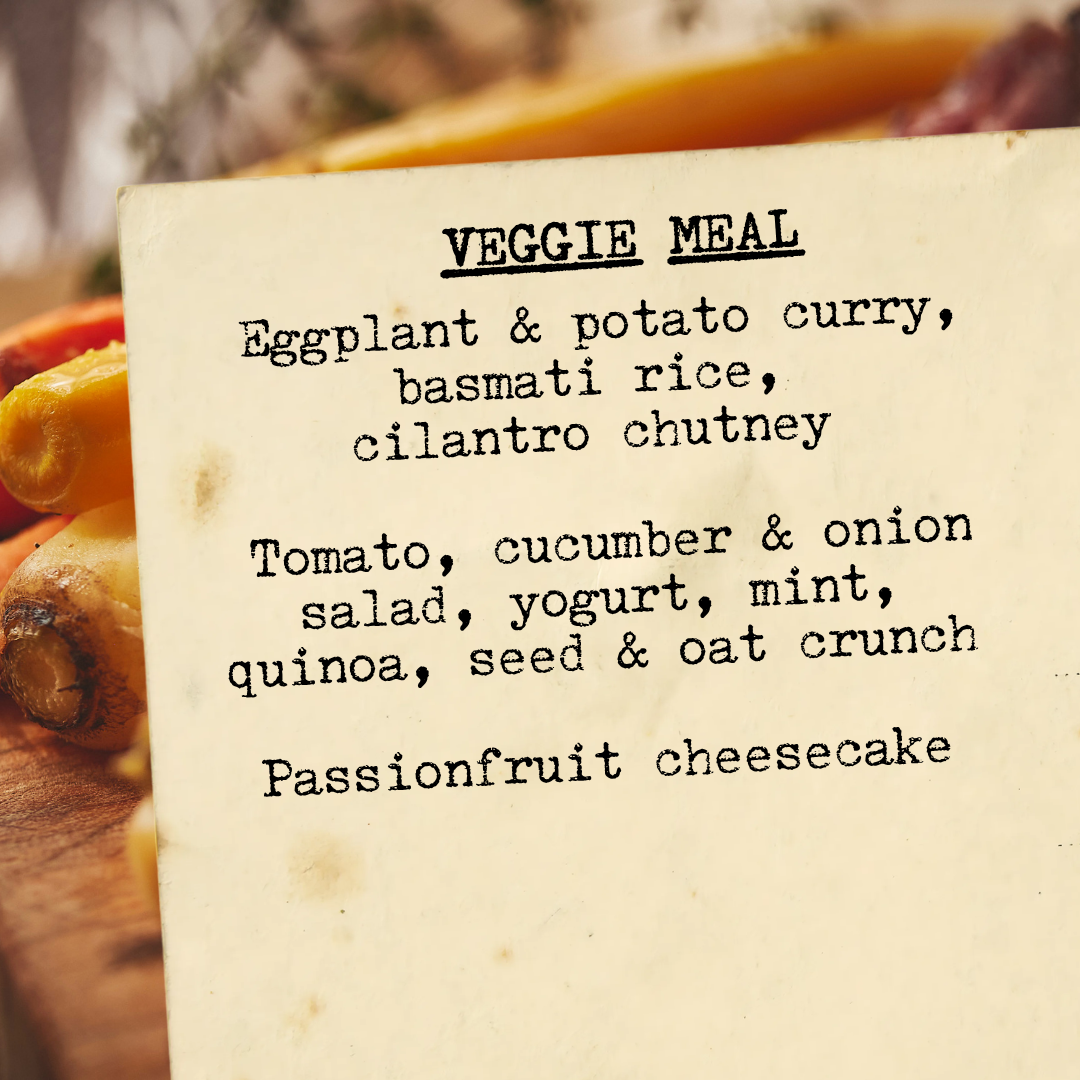 VEGGIE MEAL
Eggplant & potato curry,
basmati rice,
cilantro chutney
Tomato, cucumber & onion
salad, yogurt, mint,
quinoa, seed & oat crunch
Passionfruit cheesecake